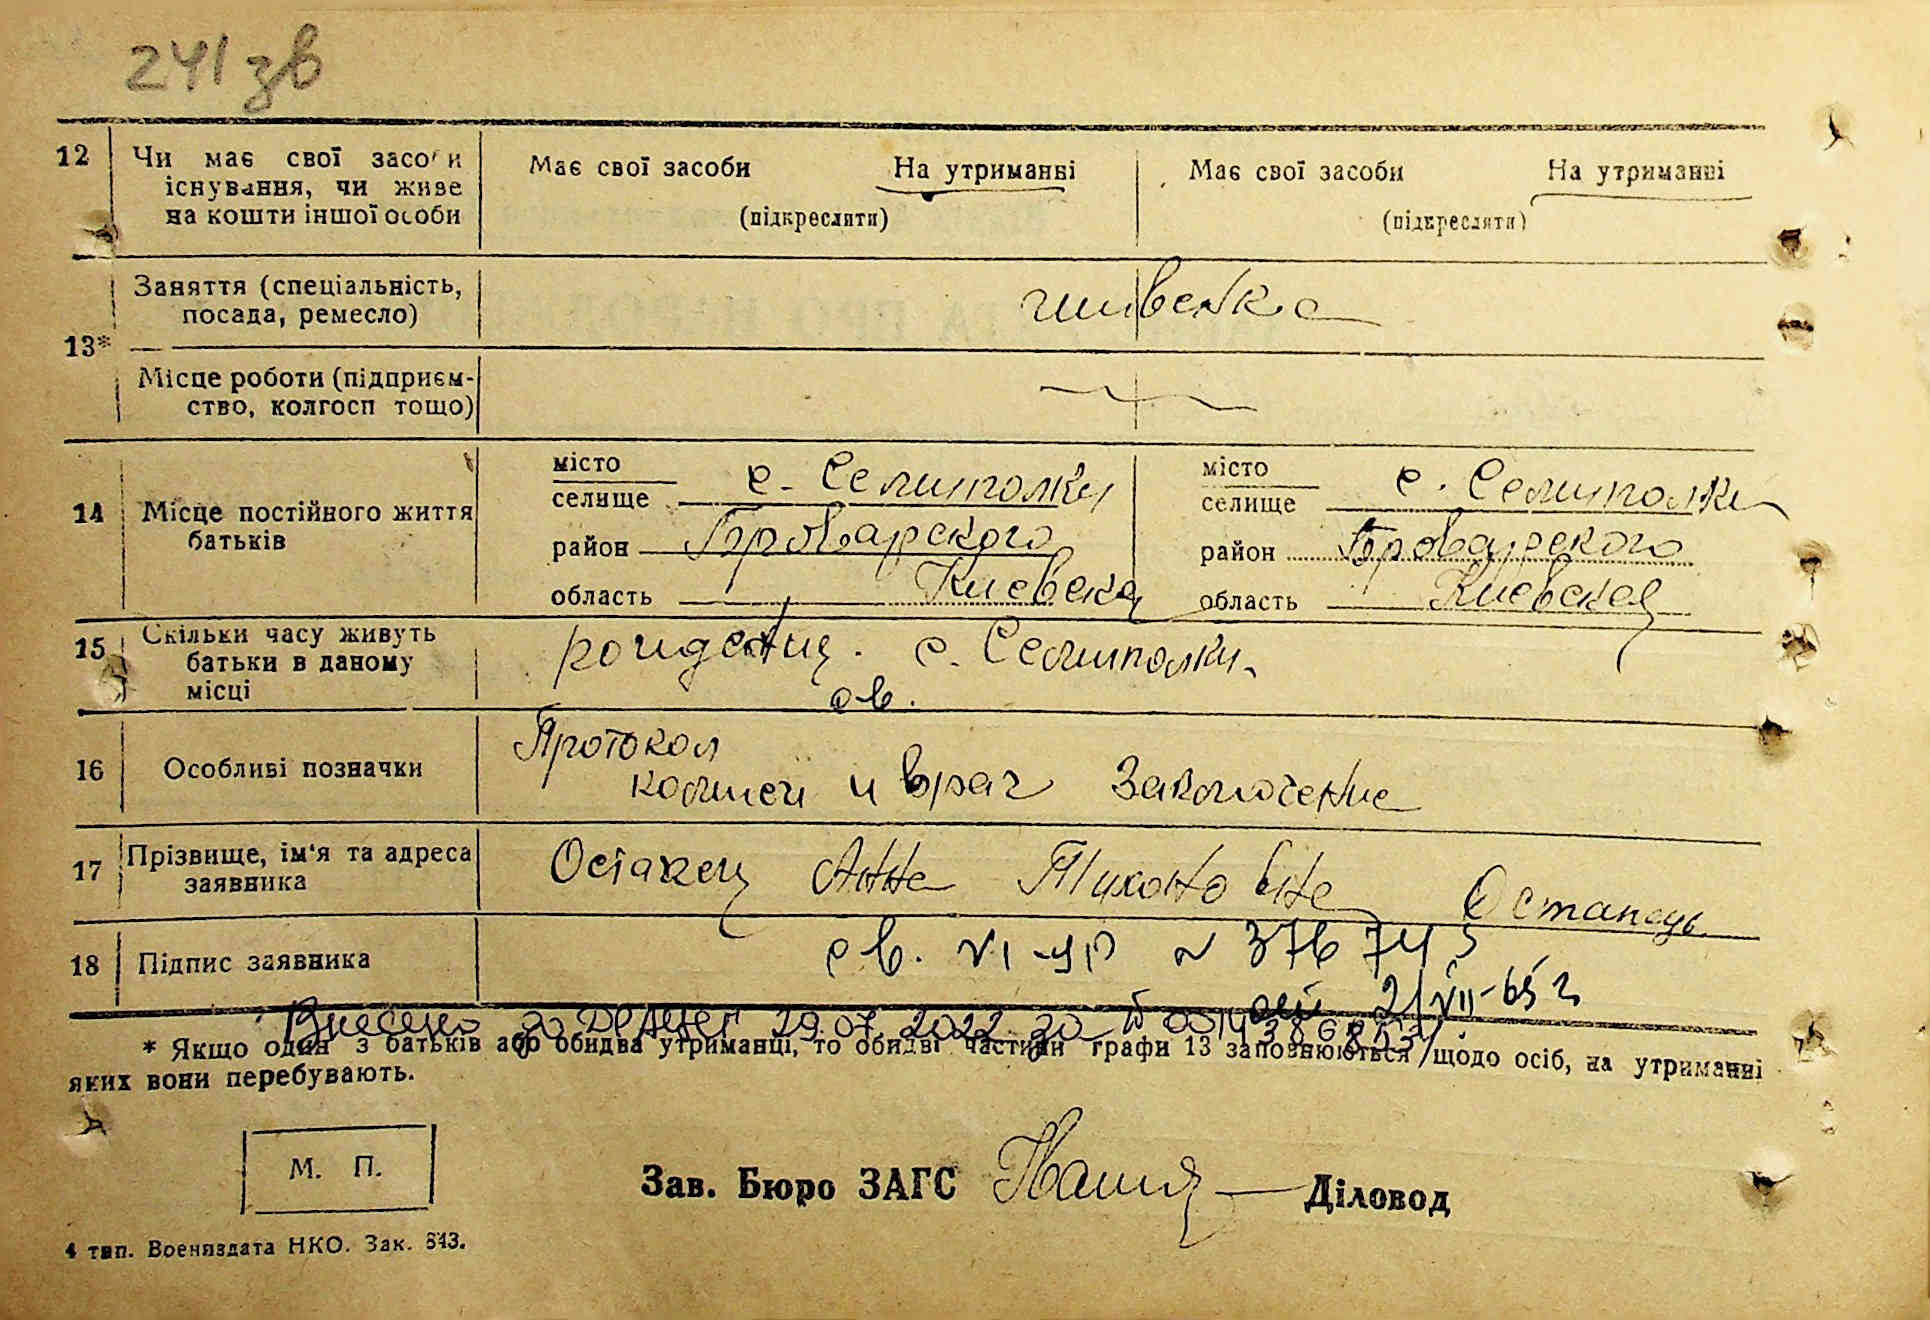 241 зв
12 Чи має свої засоби існування, чи живе на кошти іншої особи
Має свої засоби На утриманні
(підкреслити)
Має свої засоби На утриманні
(підкреслити)
13*
Заняття (спеціальність, посада, ремесло)
Місце роботи (підприємство, колгосп тощо)
14 Місце постійного життя батьків
місто
селище с.
район Броварского
область Киевская
місто
селище с.
район Броварского
область Киевская
15 Скільки часу живуть батьки в даному місці
с.
16 Особливі позначки
Протокол
и врач Заключение
17 Прізвище, ім'я та адреса заявника
Остапец Анна Тихоновна Остапець
18 Підпис заявника
св. VI-УР № 376745
21/VII-65 г
Внесено до ДРАЦСГ 29.07.2022 за №
* Якщо один з батьків або обидва утриманці, то обидві частини графи 13 заповнюються щодо осіб, на утриманні
яких вони перебувають.
М. П.
Зав. Бюро ЗАГС Діловод
4 тип. Воениздата НКО. Зак. 843.